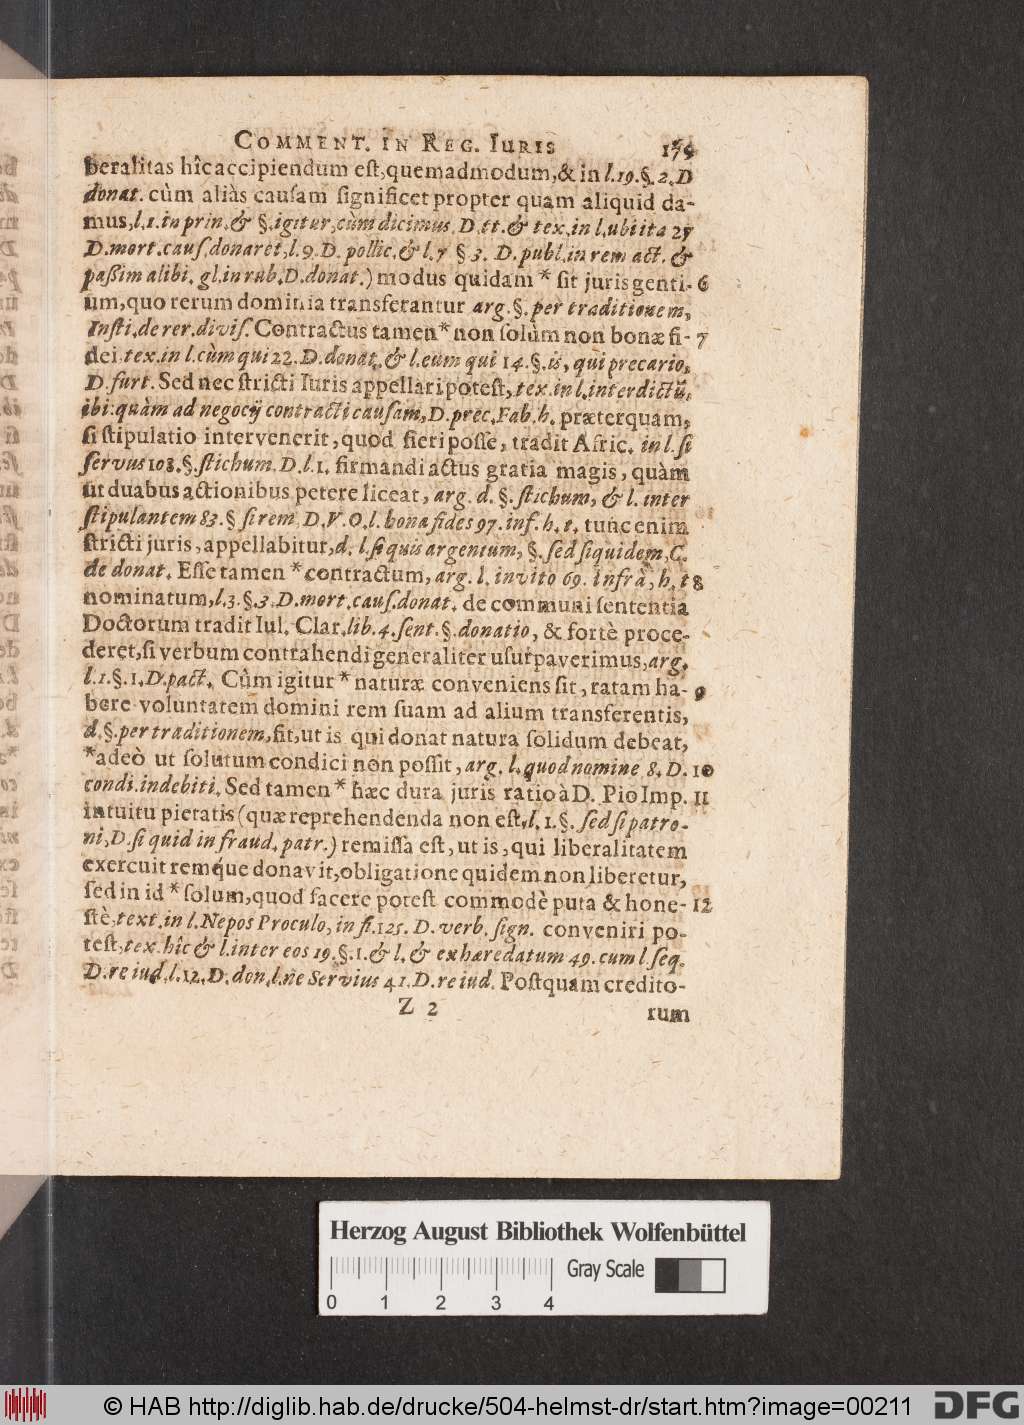 COMMENT. IN REG. IURIS
beralitas hîc accipiendum est, quemadmodum, & in l. 19. §. 2. D
donat. cùm aliàs causam significet propter quam aliquid da-
mus, l. 1. in prin. & §. igitur, cùm dicimus. D. tt. & tex. in l. ubi ita 27
D. mort. caus. donaret, l. 9. D. pollic. & l. 7 § 3. D. publ. in rem act. &
paßim alibi. gl. in rub. D. donat.) modus quidam * sit juris genti- 6
um, quo rerum dominia transferantur arg. §. per traditionem,
Insti. de rer. divis. Contractus tamen * non solùm non bonæ fi- 7
dei tex. in l. cùm qui 22. D. donat. & l. eum qui 14. §. is, qui precario,
D. furt. Sed nec stricti Iuris appellari potest, tex. in l. interdictũ,
ibi: quàm ad negocij contracti causam, D. prec. Fab. h. præterquam,
si stipulatio intervenerit, quod fieri posse, tradit Afric. in l. si
servus 108. §. stichum. D. l. 1. firmandi actus gratia magis, quàm
ut duabus actionibus petere liceat, arg. d. §. stichum, & l. inter
stipulantem 83. § si rem. D. V. O. l. bona fides 97. inf. h. t. tunc enim
stricti juris, appellabitur, d. l. si quis argentum, §. sed siquidem, C.
de donat. Esse tamen * contractum, arg. l. invito 69. infrà, h. t 8
nominatum, l. 3. §. 3. D. mort. caus. donat. de communi sententia
Doctorum tradit Iul. Clar. lib. 4. sent. §. donatio, & fortè proce-
deret, si verbum contrahendi generaliter usurpaverimus, arg.
l. 1. §. 1. D. pact. Cûm igitur * naturæ conveniens sit, ratam ha- 9
bere voluntatem domini rem suam ad alium transferentis,
d. §. per traditionem, fit, ut is qui donat natura solidum debeat,
*adeò ut solutum condici non possit, arg. l. quod nomine 8. D. 10
condi. indebiti. Sed tamen * hæc dura juris ratio à D. Pio Imp. 11
intuitu pietatis (quæ reprehendenda non est, l. 1. §. sed si patro-
ni, D. si quid in fraud. patr.) remissa est, ut is, qui liberalitatem
exercuit remq́ue donavit, obligatione quidem non liberetur,
sed in id * solum, quod facere potest commodè puta & hone- 12
stè, text. in l. Nepos Proculo, in fi. 125. D. verb. sign. conveniri po-
test, tex. hîc & l. inter eos 19. §. 1. & l. & exhæredatum 49. cum l. seq.
D. re iud. l. 12. D. don. l. ne Servius 41. D. re iud. Postquam credito-
Z 2 rum
Herzog August Bibliothek Wolfenbüttel
Gray Scale
0 1 2 3 4
© HAB http://diglib.hab.de/drucke/504-helmst-dr/start.htm?image=00211 DFG